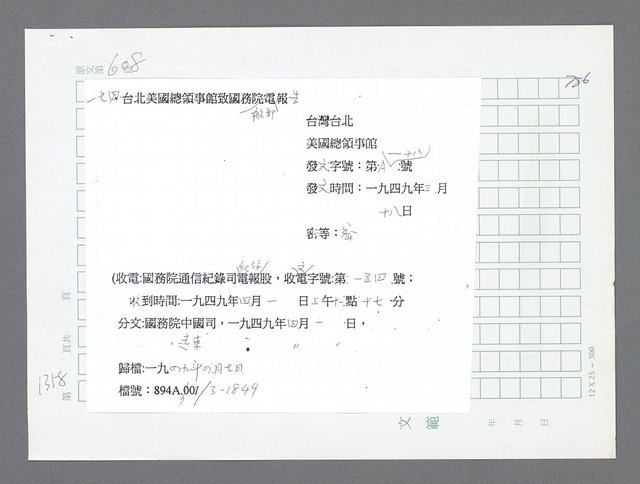 原文第 608
786
一七四 台北美國總領事館致國務院電報
航郵
台灣台北
美國總領事館
發文字號：第A一十八號
發文時間：一九四九年三月
十八日
密等：密
(收電:國務院通信紀錄司電報股，收文字號:第一五四號；
收到時間:一九四九年四月一日上午十一點十七分
分文:國務院中國司，一九四九年四月一日，
遠東 〃 〃
歸檔:一九四九年四月七日
檔號：894A.00/3-1849
頁
頁共
1358
第
12 X 25 = 300
文範
年 月 日